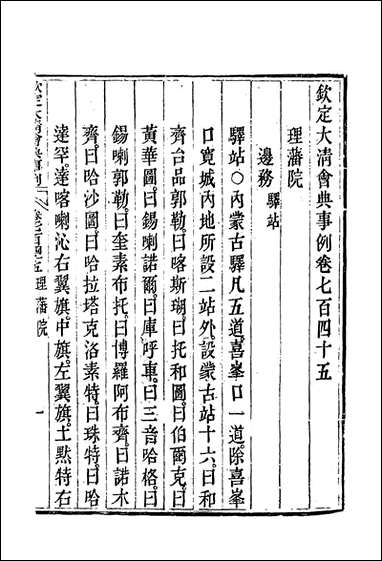 欽定大清會典事例卷七百四十五
理藩院
邊務 驛站
驛站○內蒙古驛凡五道喜峯口一道除喜峯
口寬城內地所設二站外設蒙古站十六曰和
齊台品郭勒曰喀斯瑚曰托和圖曰伯爾克曰
黃華圖曰錫喇諾爾曰庫呼車曰三音哈格曰
錫喇郭勒曰奎素布托曰博羅阿布齊曰諾木
齊曰哈沙圖曰哈拉塔克洛素特曰珠特曰哈
達罕達喀喇沁右翼旗中旗左翼旗土默特右
欽定大清會典事例 卷七百四十五 理藩院 一